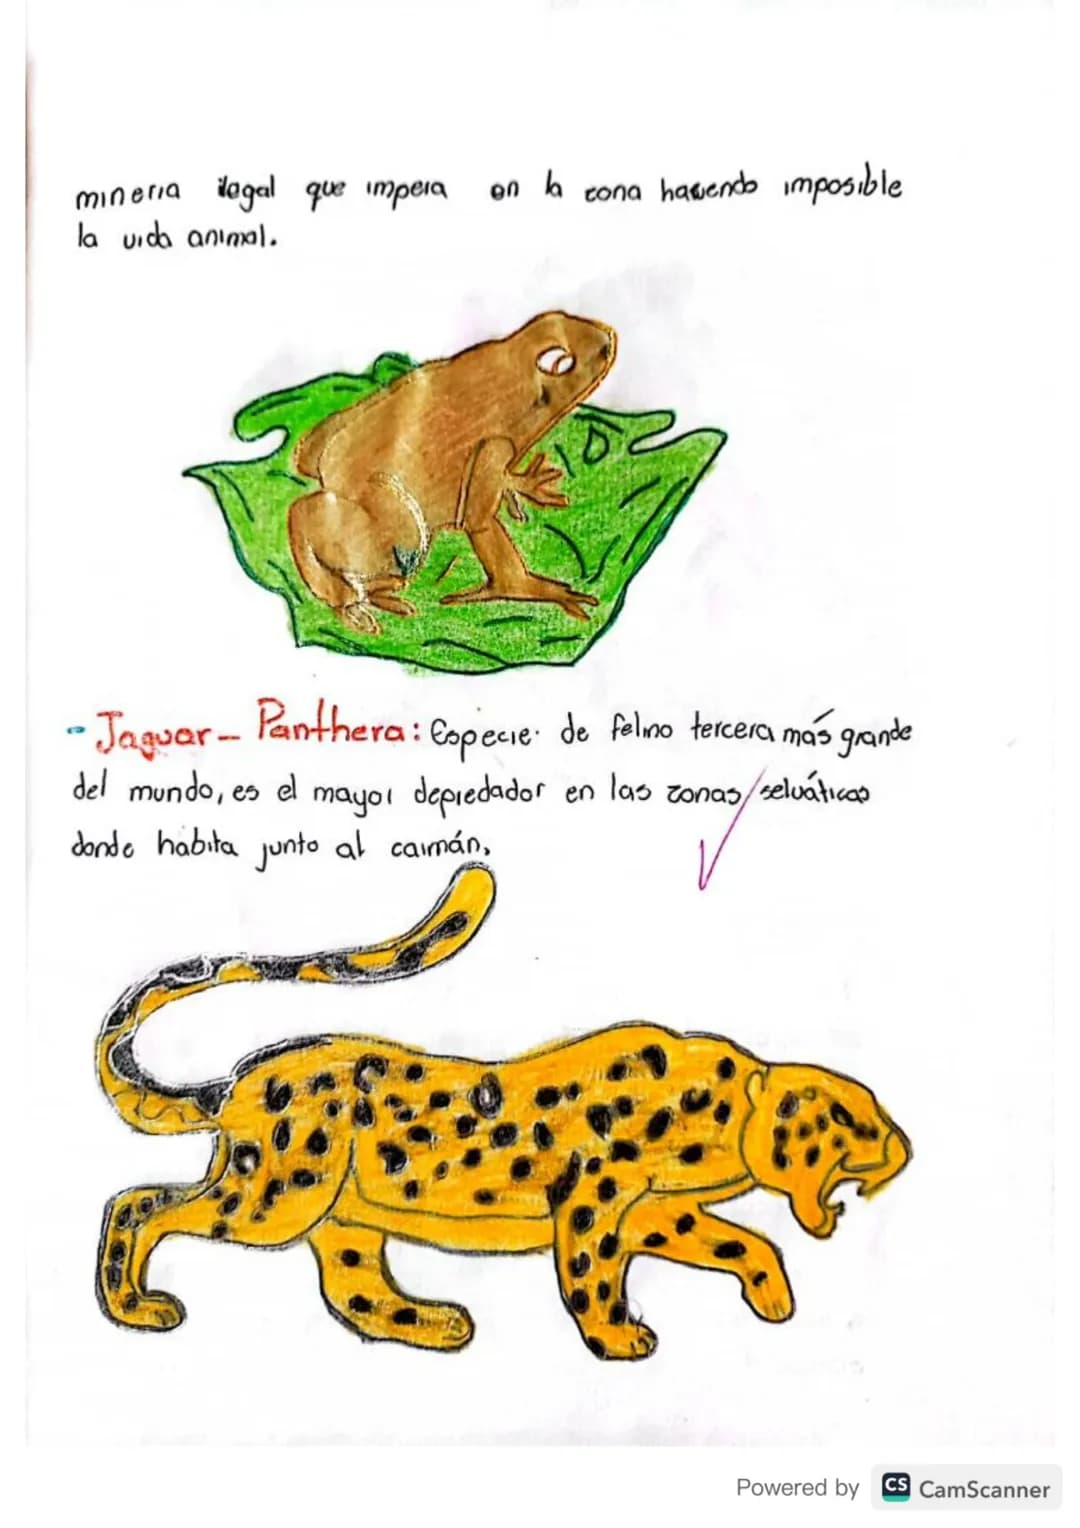 mineria ilegal que impera en la zona haciendo imposible
la vida animal.
- Jaguar - Panthera: Especie de felino tercera más grande
del mundo, es el mayor depredador en las zonas selváticas
donde habita junto al caimán.
Powered by CS CamScanner